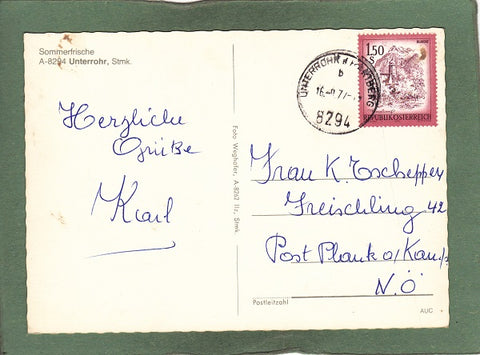 Sommerfrische
A-8294 Unterrohr, Stmk.
Herzliche
Grüße
Karl
Foto Weghofer, A-8262 Ilz, Stmk.
UNTERROHR HARTBERG
b
8294
1.50
S
REPUBLIK ÖSTERREICH
Frau K. Tscheppen
Freischling 42
Post Plank a/Kamp
N.Ö
Postleitzahl
AUC